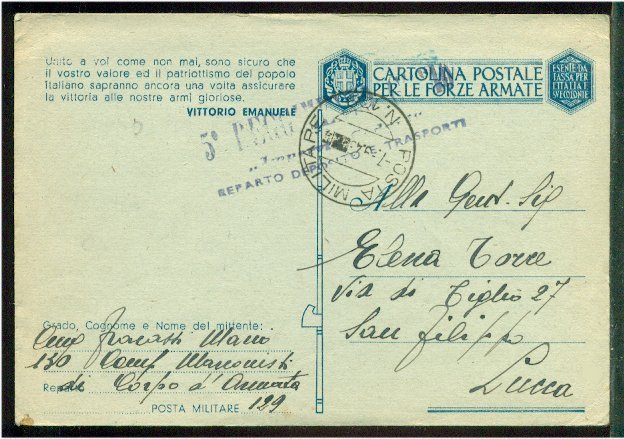 Unito a voi come non mai, sono sicuro che
il vostro valore ed il patriottismo del popolo
italiano sapranno ancora una volta assicurare
la vittoria alle nostre armi gloriose.
VITTORIO EMANUELE
CARTOLINA POSTALE
PER LE FORZE ARMATE
ESENTE DA
TASSA PER
L'ITALIA E
SUE COLONIE
5°
REPARTO DEPOSITO TRASPORTI
POSTA MILITARE N.
Alla Gent. Sig
Elena Torre
Via di Tiglio 27
San Filippo
Lucca
Grado, Cognome e Nome del mittente:
Mario
130 Comp Marconisti
Reparto di Corpo d'Armata
POSTA MILITARE 129